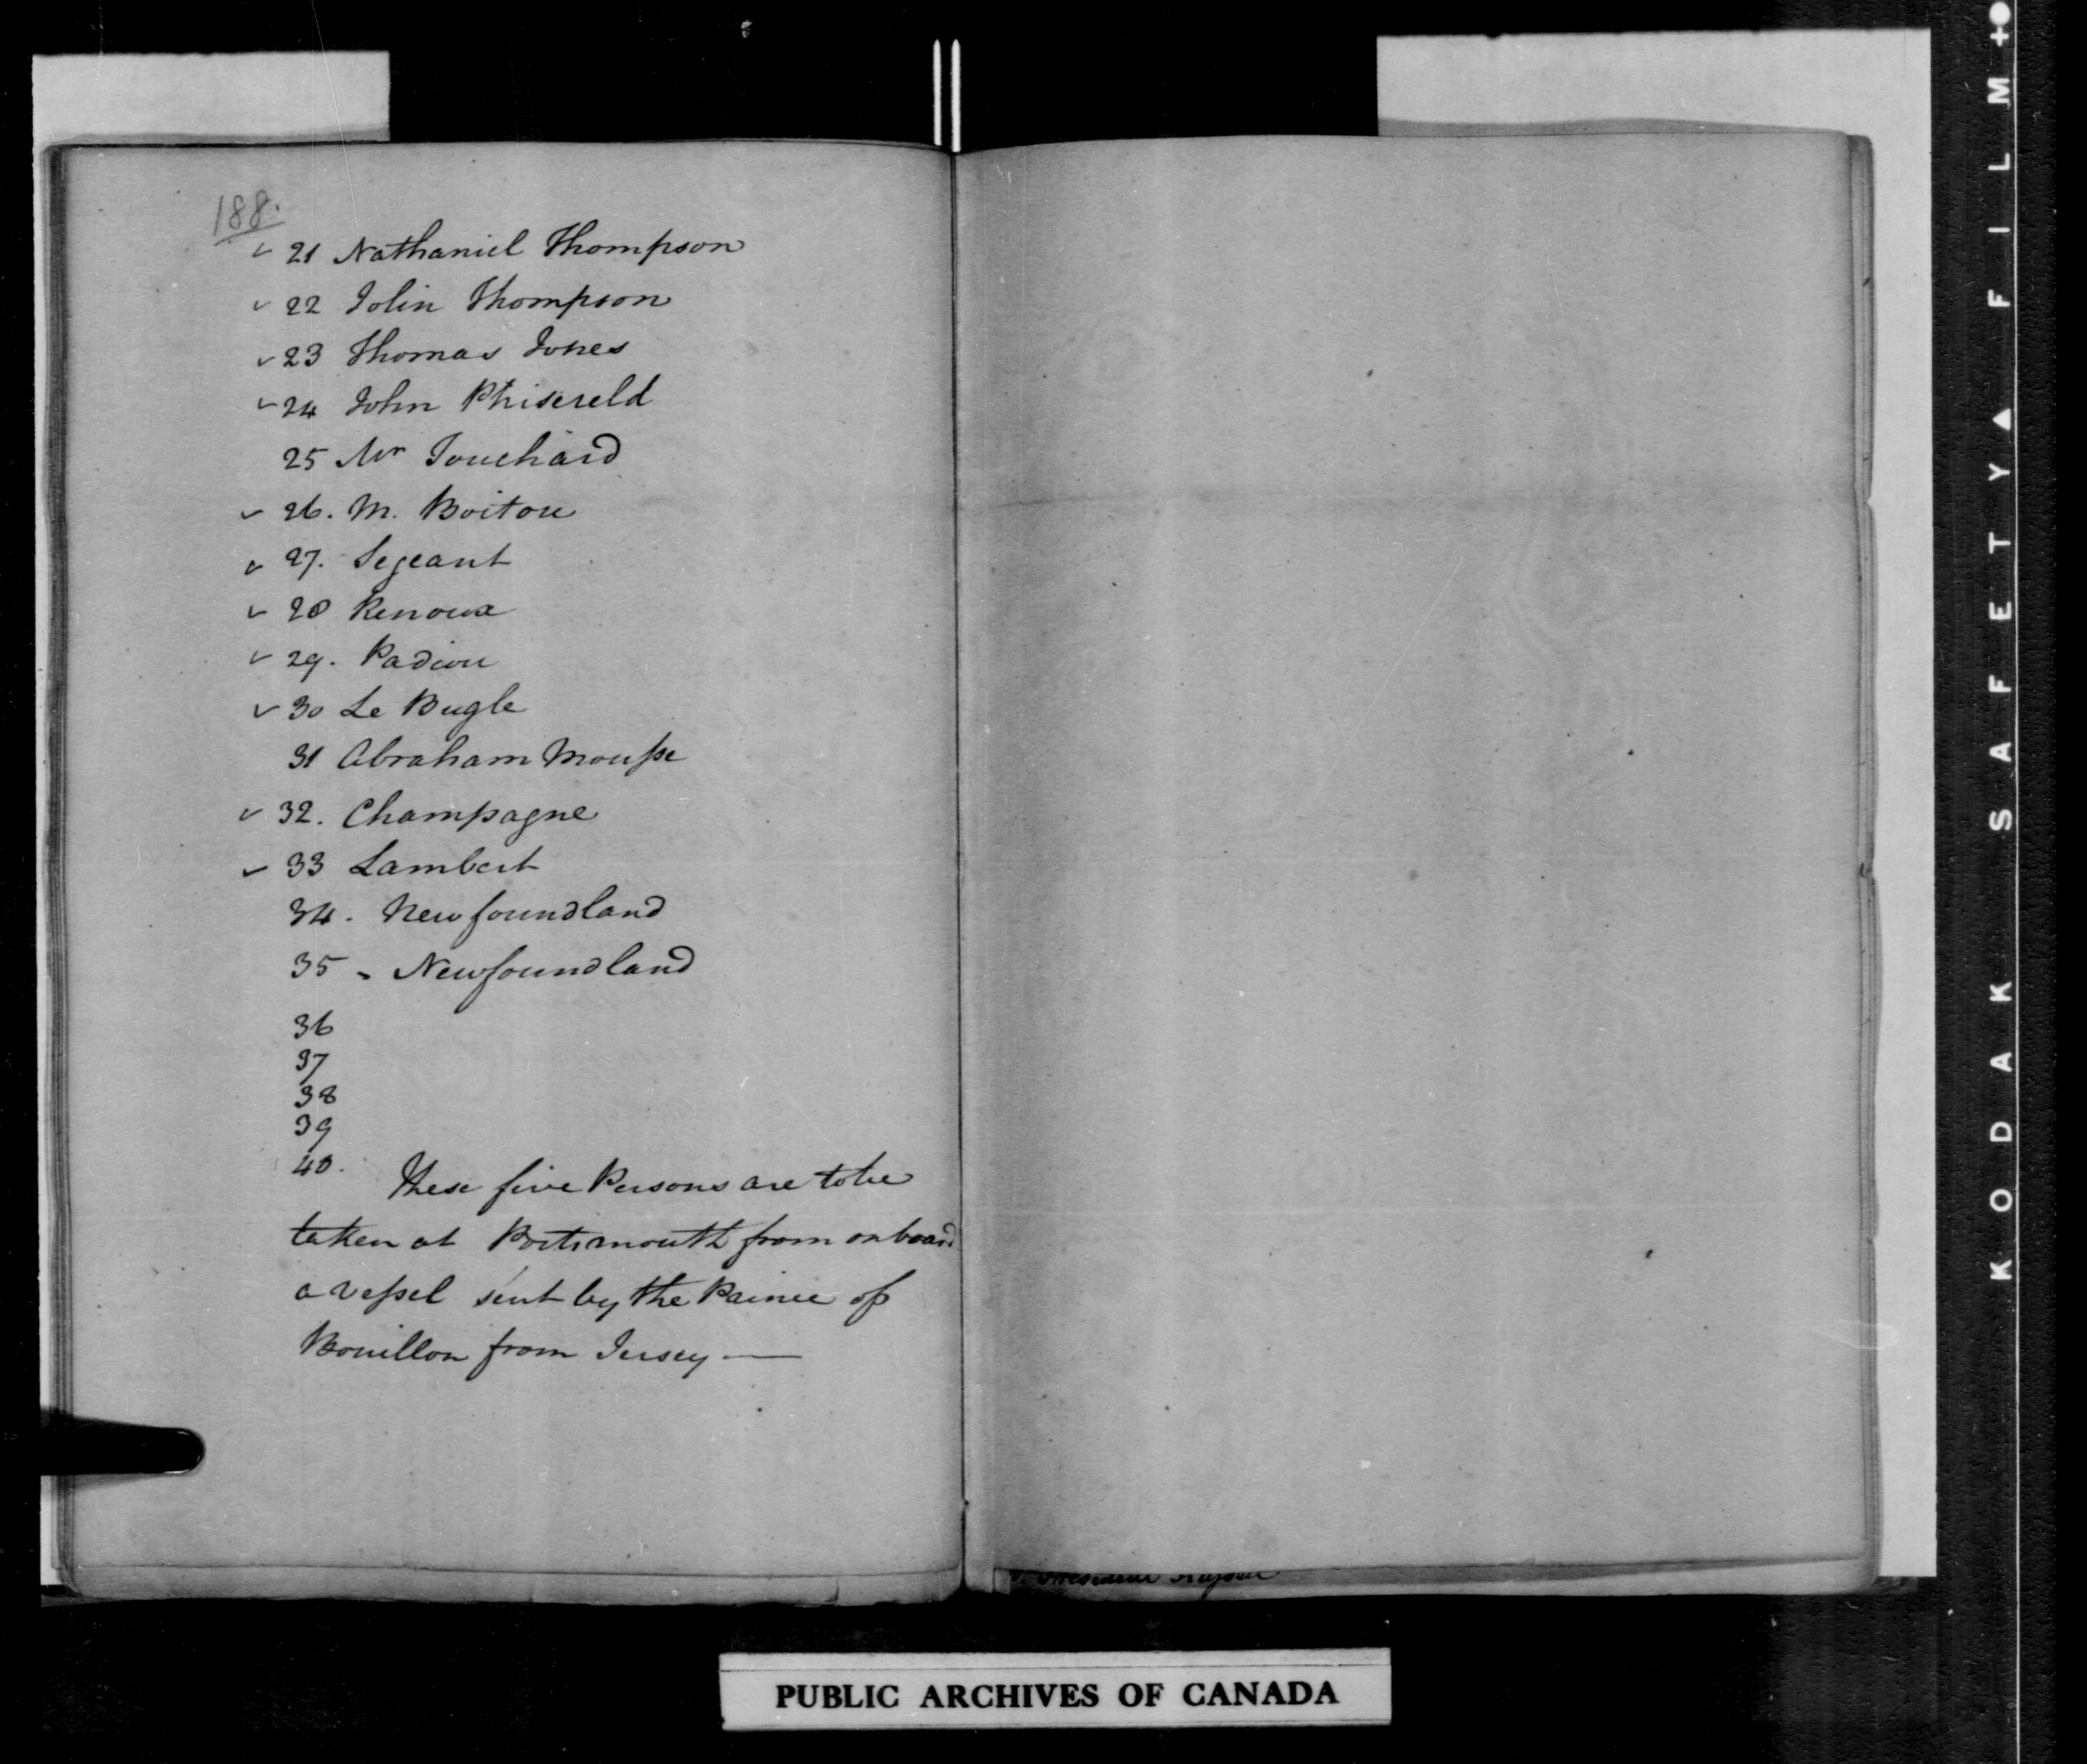 188.
✓ 21 Nathaniel Thompson
✓ 22 John Thompson
✓ 23 Thomas Jones
✓ 24 John Phisereld
25 Mr Touchard
✓ 26. M. Boiton
✓ 27. Segeant
✓ 28 Renoux
✓ 29. Padiou
✓ 30 Le Bugle
31 Abraham Mousse
✓ 32. Champagne
✓ 33 Lambert
34. Newfoundland
35 - Newfoundland
36
37
38
39
40.
These five Persons are to be
taken at Portsmouth from on board
a vessel sent by the Prince of
Bouillon from Jersey —
PUBLIC ARCHIVES OF CANADA
KODAK SAFETY ▲ FILM +●